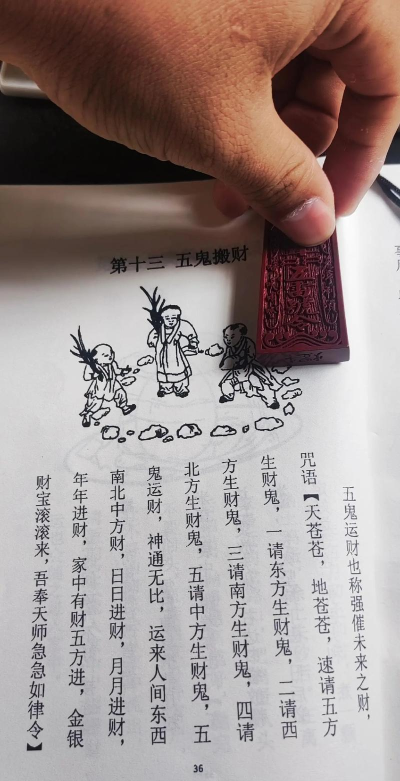 第十三 五鬼搬财
五鬼运财也称强催未来之财，
咒语【天苍苍，地苍苍，速请五方
生财鬼，一请东方生财鬼，二请西
方生财鬼，三请南方生财鬼，四请
北方生财鬼，五请中方生财鬼，五
鬼运财，神通无比，运来人间东西
南北中方财，日日进财，月月进财，
年年进财，家中有财五方进，金银
财宝滚滚来，吾奉天师急急如律令】
36